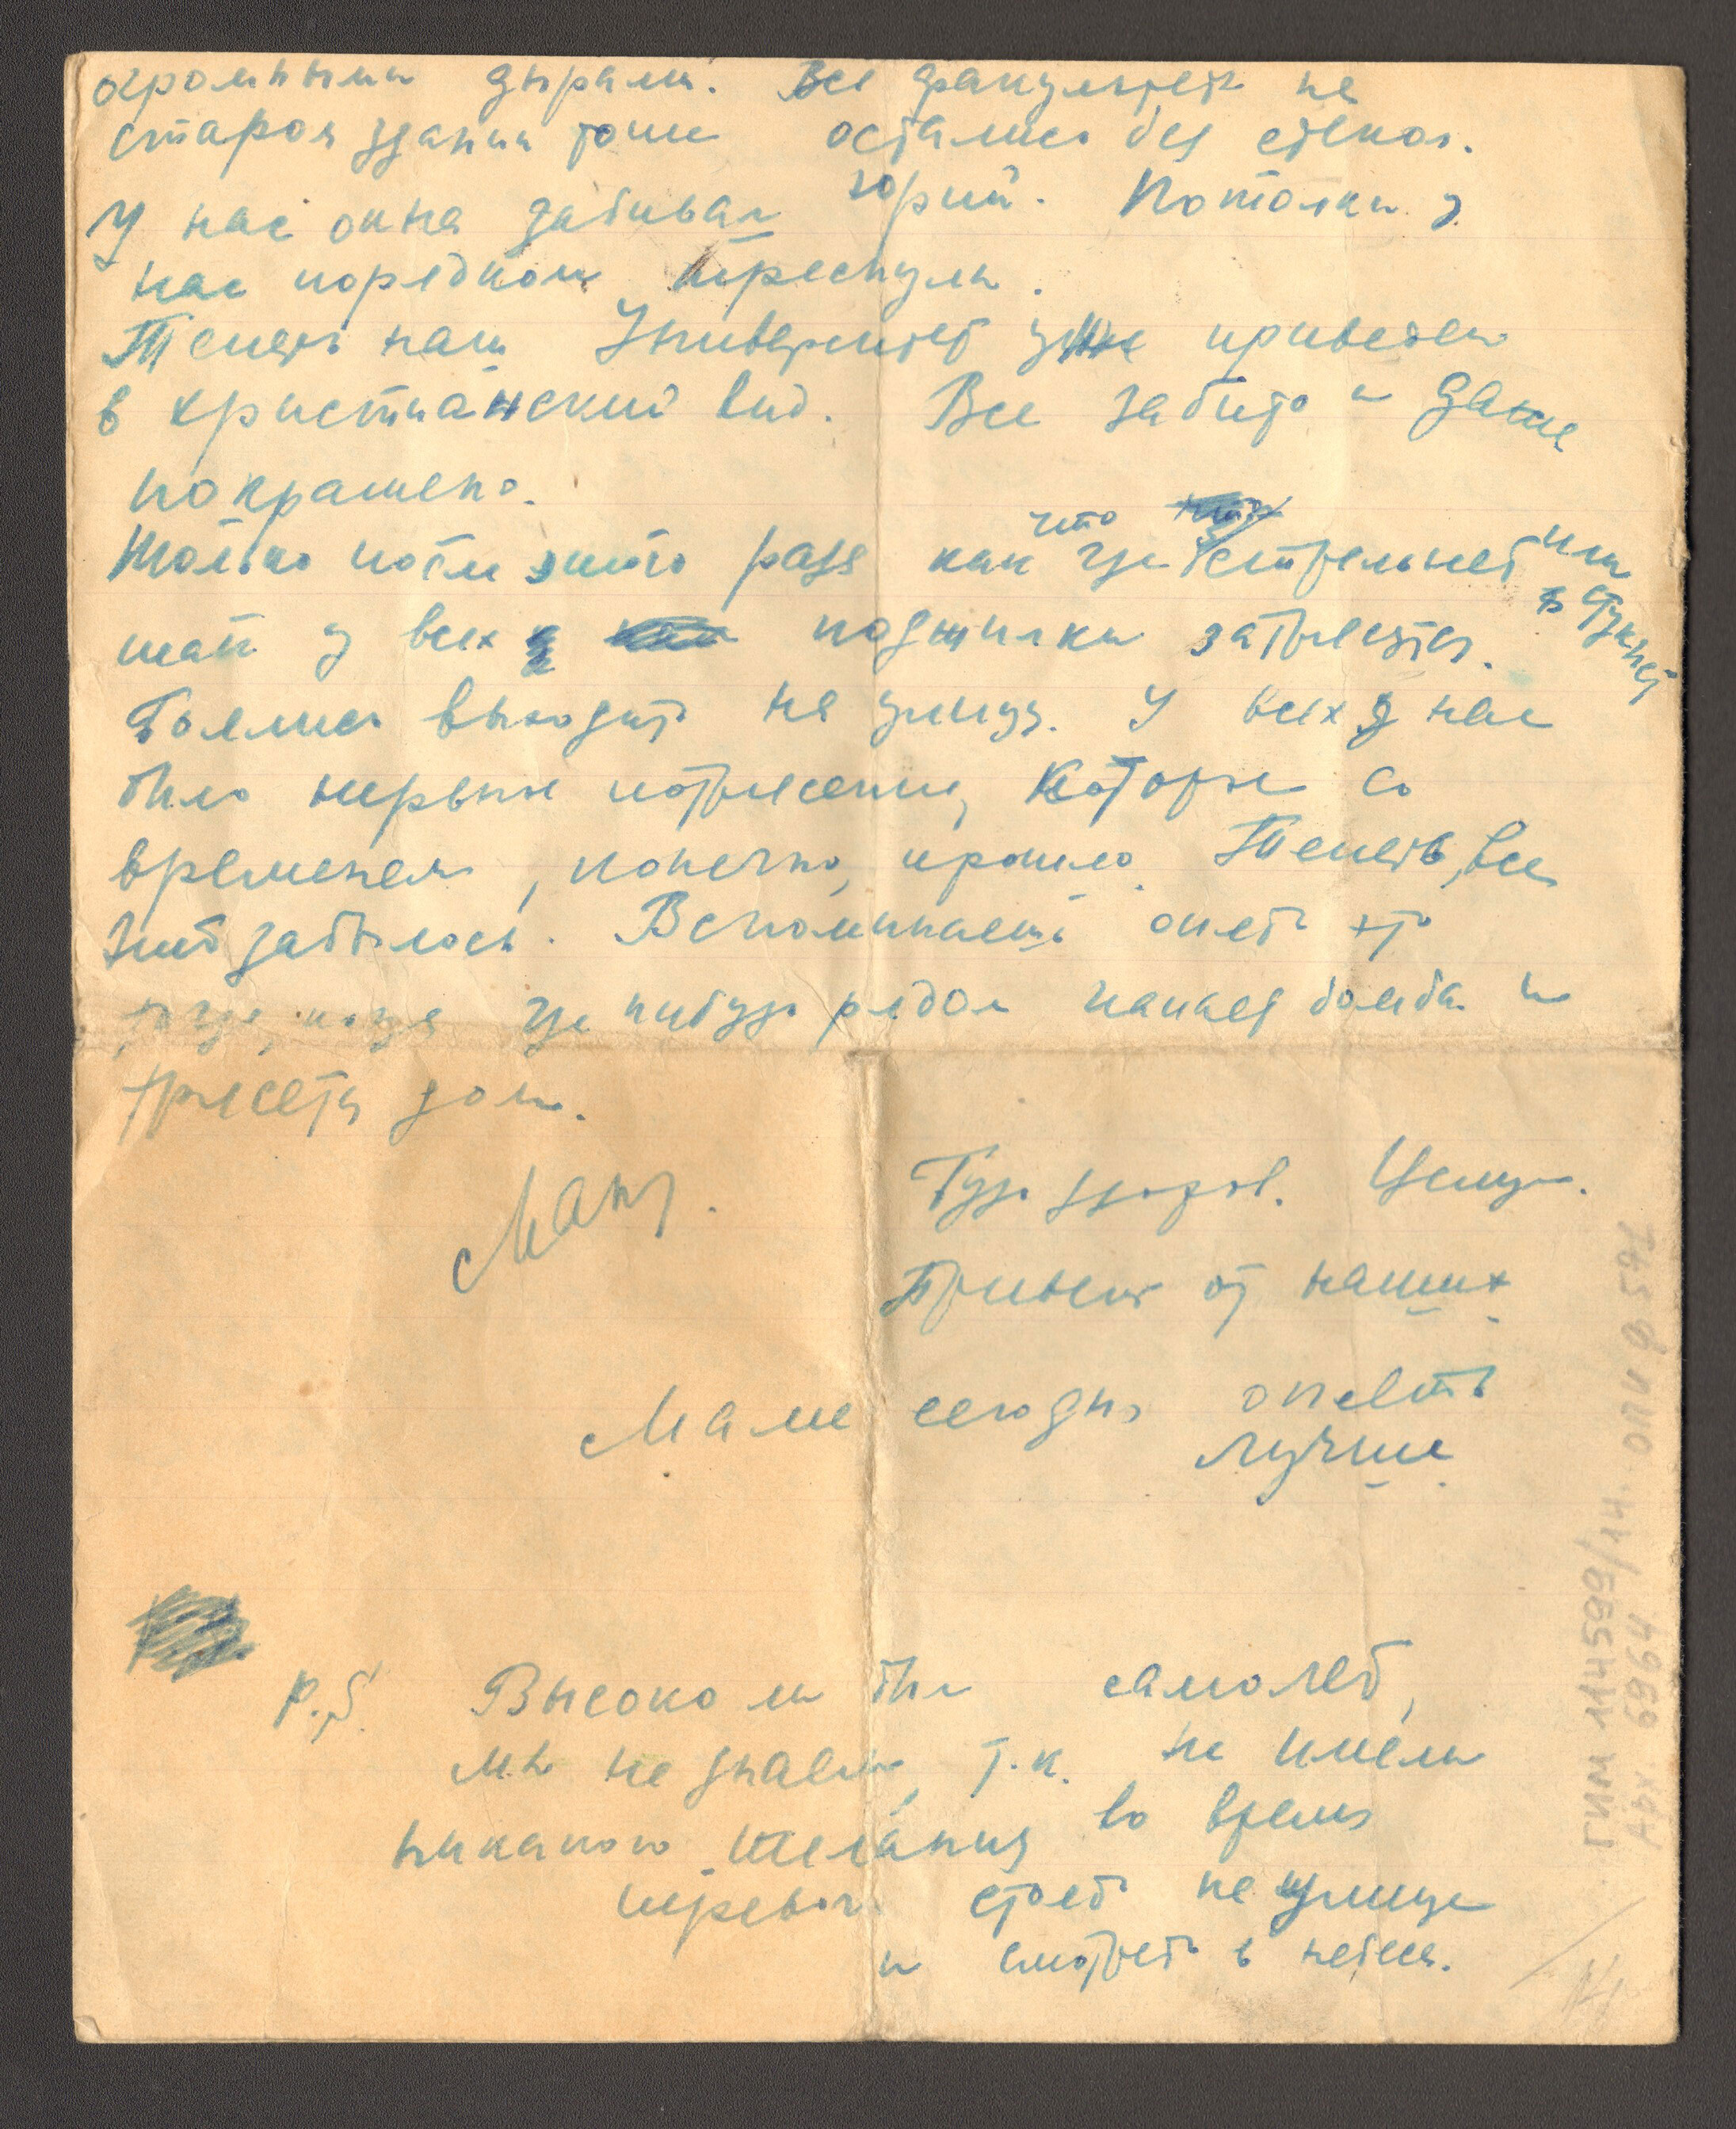 огромными дырами. Все факультеты на
старом здании тоже остались без стекол.
У нас окна забивал Юрий. Потолки у
нас порядком треснули.
Теперь наш Университет уже приведен
в христианский вид. Все забито и даже
покрашено.
Только после этого раза как что где стрельнет или стукнет
так у всех поджилки затрясутся.
Боялись выходить на улицу. У всех у нас
было нервное потрясение, которое со
временем, конечно, прошло. Теперь, все
это забылось. Вспоминаешь опять это
тогда, когда где нибудь рядом упадет бомба и
трясется дом.
Будь здоров. Целую.
Маня.
Привет от наших.
Маме сегодня опять
лучше.
P.S. Высоко ли был самолет,
мы не знаем, т.к. не имели
никакого желания во время
тревоги стоять на улице
и смотреть в небеса.
ГИМ 114589/14.
Арх. 6964 ОПИ Ф 597
14